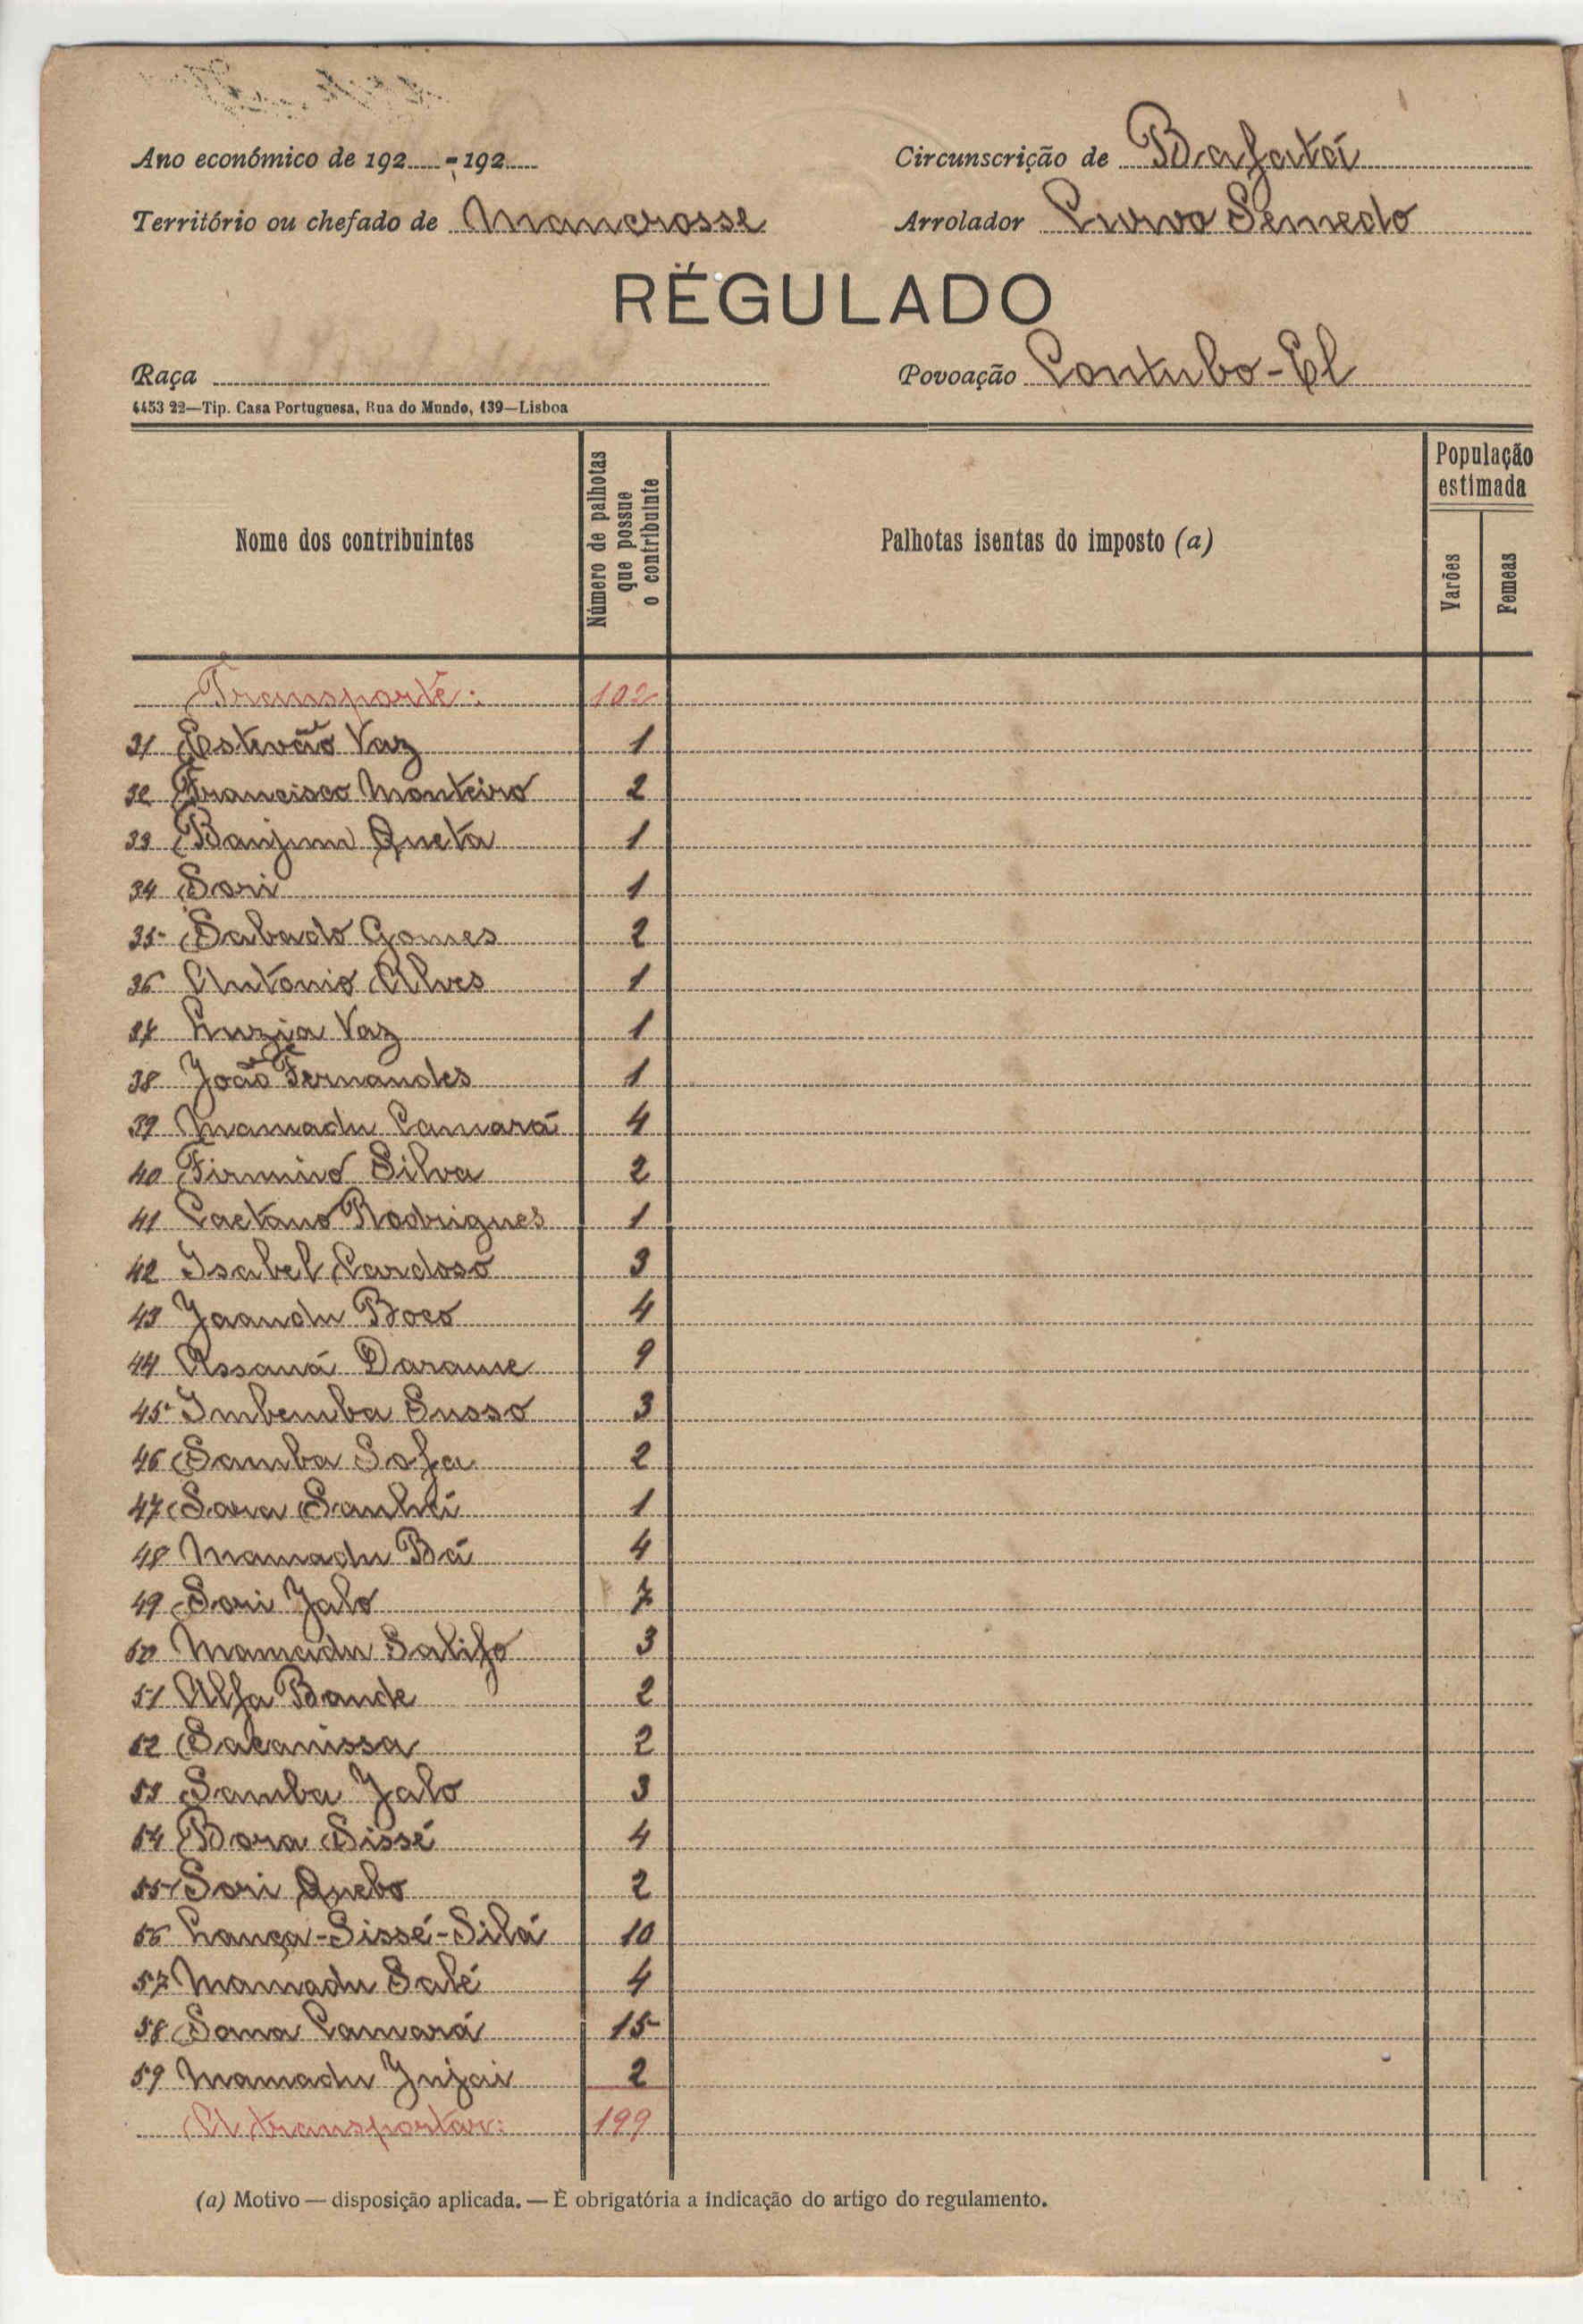 Ano económico de 192.....-192.....
Circunscrição de Bafatá
Território ou chefado de Mancrosse
Arrolador Curvo Semedo
RÉGULADO
Raça
Povoação Contubo-El
4453 22—Tip. Casa Portuguesa, Rua do Mundo, 139—Lisboa
Nome dos contribuintes
Número de palhotas que possue o contribuinte
Palhotas isentas do imposto (a)
População estimada
Varões
Femeas
Transporte: 102
31 Estevão Vaz 1
32 Francisco Monteiro 2
33 Banjum Queta 1
34 Sori 1
35 Sabado Gomes 2
36 Antonio Alves 1
37 Luzia Vaz 1
38 João Fernandes 1
39 Mamadu Camará 4
40 Firmino Silva 2
41 Caetano Rodrigues 1
42 Isabel Cardoso 3
43 Jaandu Boco 4
44 Assaná Darame 9
45 Imbemba Susso 3
46 Samba Sofa 2
47 Sara Sanhá 1
48 Mamadu Bá 4
49 Sori Jalo 7
50 Mamadu Salifo 3
51 Alfa Bande 2
52 Sacanissa 2
53 Samba Jalo 3
54 Bora Sissé 4
55 Sori Quebo 2
56 Lança-Sissé-Silá 10
57 Mamadu Salé 4
58 Sana Camará 15
59 Mamadu Injai 2
A transportar: 199
(a) Motivo — disposição aplicada. — É obrigatória a indicação do artigo do regulamento.